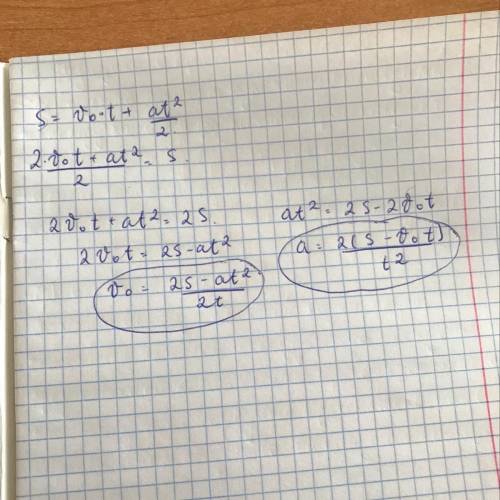 S = v₀·t + at²/2
2·v₀t + at²/2 = S.
2v₀t + at² = 2S.
2v₀t = 2S - at²
v₀ = 2S - at²/2t
at² = 2S - 2v₀t
a = 2(S - v₀t)/t²